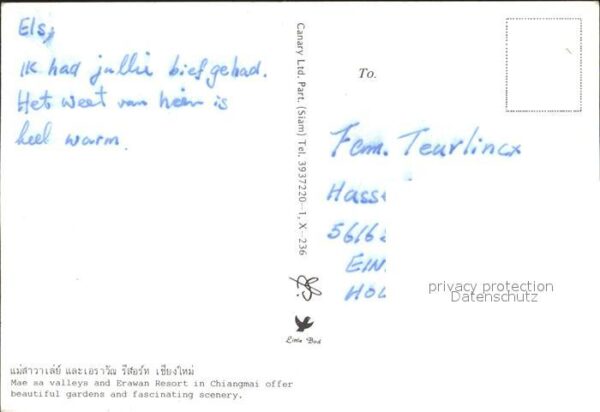 Els,
ik had jullie bief gehad.
Het weet van hier is
heel warm.
Canary Ltd. Part. (Siam) Tel. 3937220-1, X-236
Little Bird
To.
Fam. Teurlincx
Hass
5616
EIN
HOL
privacy protection
Datenschutz
แม่สาวาเล่ย์ และเอราวัณ รีสอร์ท เชียงใหม่
Mae sa valleys and Erawan Resort in Chiangmai offer
beautiful gardens and fascinating scenery.